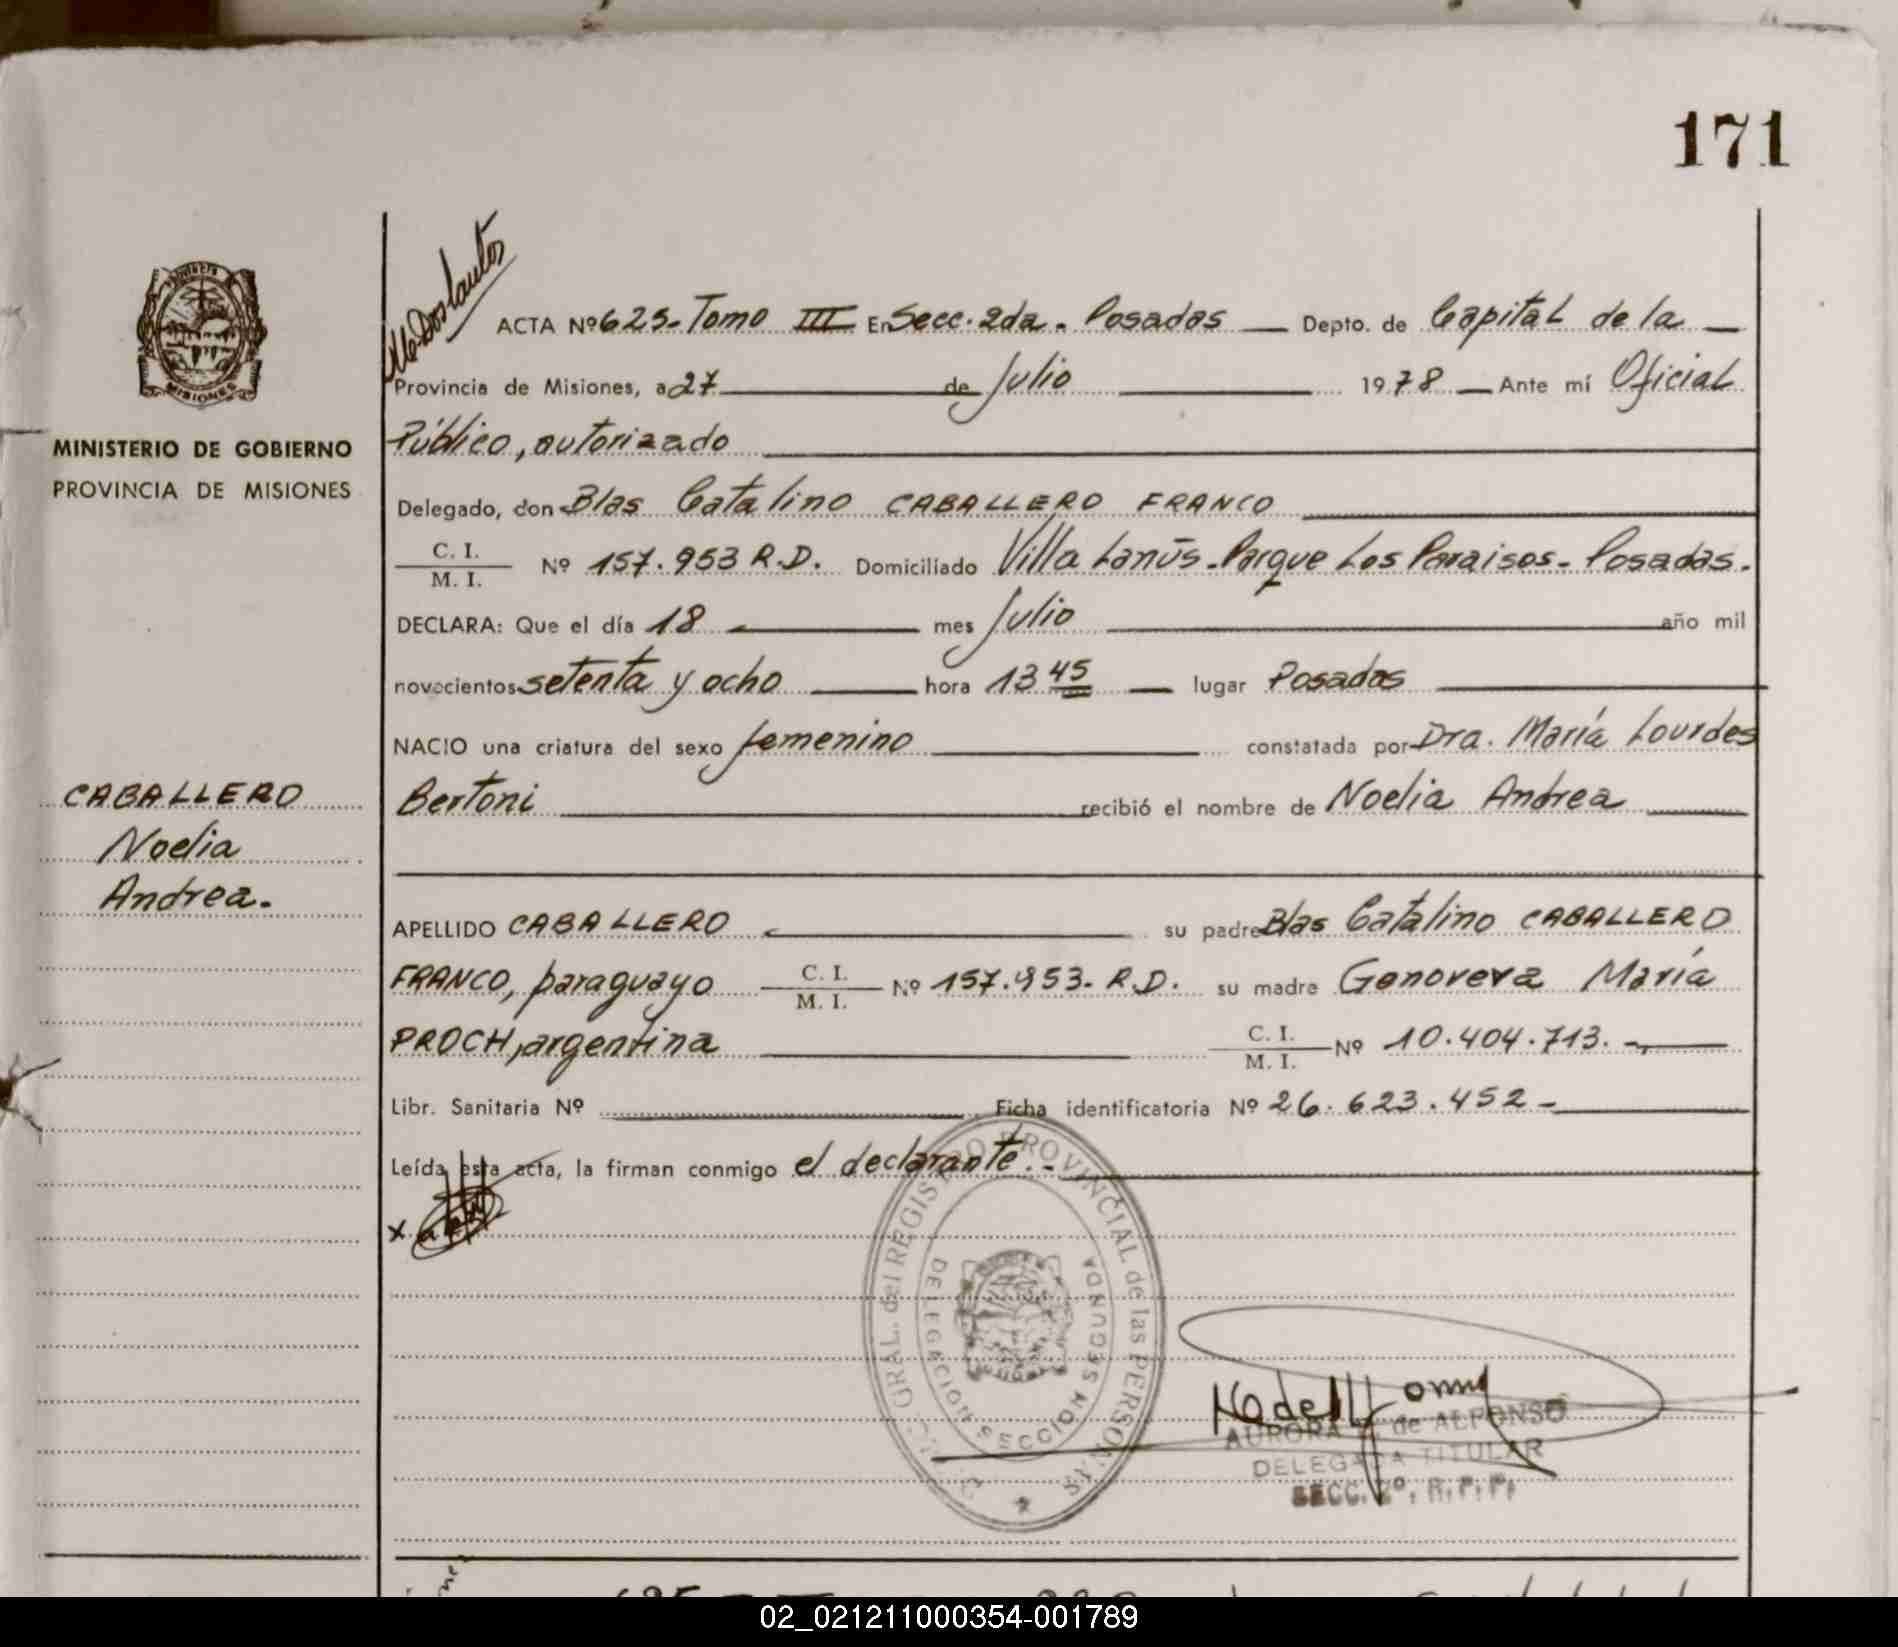 171
M6 Dos Santos
ACTA Nº 625- Tomo III En Secc. 2da. Posadas Depto. de Capital de la
Provincia de Misiones, a 27 de Julio 1978 Ante mí Oficial
MINISTERIO DE GOBIERNO
PROVINCIA DE MISIONES
Público, autorizado
Delegado, don Blas Catalino CABALLERO FRANCO
C. I.
M. I.
Nº 157.953 R.D. Domiciliado Villa Lanús-Parque Los Paraisos- Posadas.
DECLARA: Que el día 18 mes Julio año mil
novecientos setenta y ocho hora 13 45 lugar Posadas
NACIO una criatura del sexo femenino constatada por Dra. María Lourdes
Bertoni recibió el nombre de Noelia Andrea
CABALLERO
Noelia
Andrea.
APELLIDO CABALLERO su padre Blas Catalino CABALLERO
FRANCO, paraguayo C. I. M. I. Nº 157.953- R.D. su madre Genoveva María
PROCH, argentina C. I. M. I. Nº 10.404.713.-
Libr. Sanitaria Nº Ficha identificatoria Nº 26.623.452-
Leída esta acta, la firman conmigo el declarante.-
x
GRAL. del REGISTRO PROVINCIAL de las PERSONAS
DELEGACION SECCION SEGUNDA
AURORA de ALFONSO
DELEGADA TITULAR
SECC. 2º. R.P.P.
02_021211000354-001789